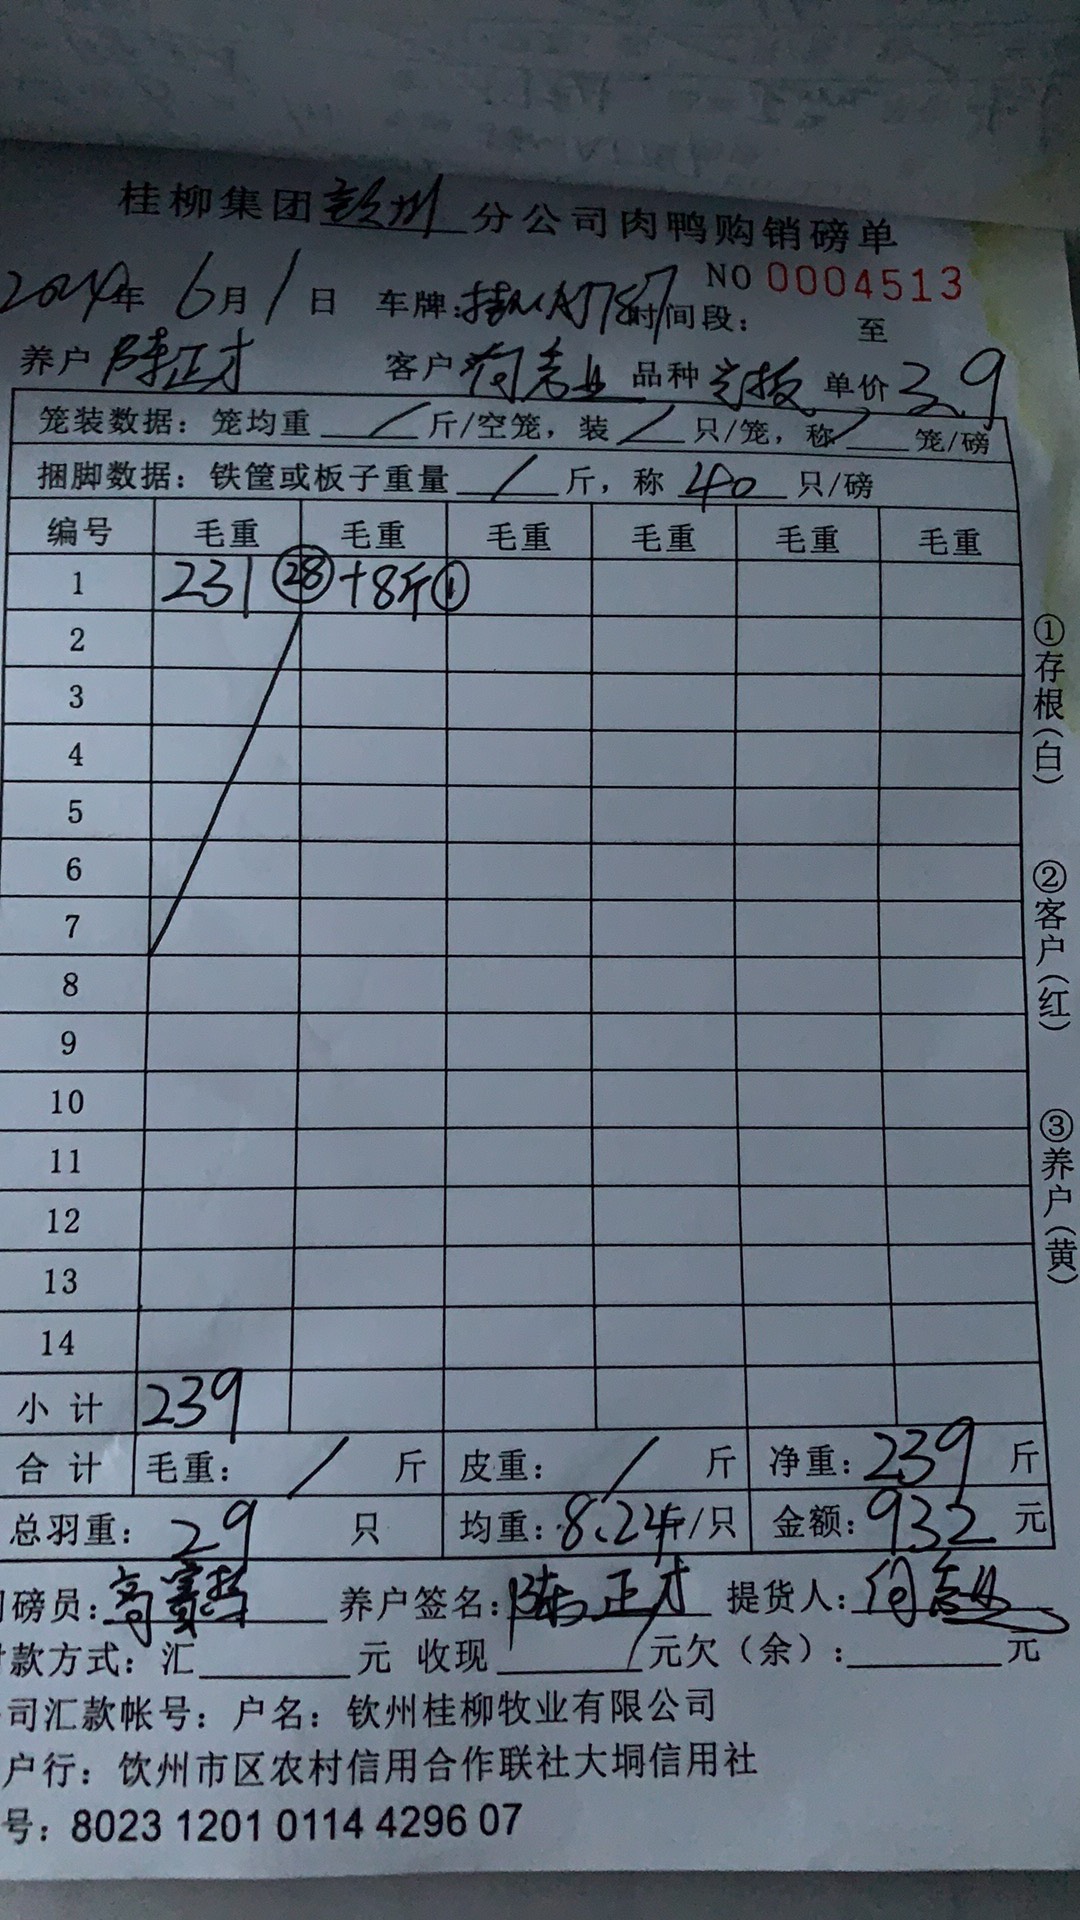 桂柳集团钦州分公司肉鸭购销磅单
NO 0004513
2024年 6月1日 车牌: 时间段: 至
养户 陈正才 客户 何志业 品种 单价 3.9
笼装数据: 笼均重 / 斤/空笼, 装 / 只/笼, 称 / 笼/磅
捆脚数据: 铁筐或板子重量 / 斤, 称 40 只/磅
编号 毛重 毛重 毛重 毛重 毛重 毛重
1 231 ㉘ +8斤①
2
3
4
5
6
7
8
9
10
11
12
13
14
小计 239
合计 毛重: / 斤 皮重: / 斤 净重: 239 斤
总羽重: 29 只 均重: 8.24斤/只 金额: 932 元
磅员: 养户签名: 陈正才 提货人: 何志业
款方式: 汇 元 收现 / 元欠(余): 元
司汇款帐号: 户名: 钦州桂柳牧业有限公司
户行: 饮州市区农村信用合作联社大垌信用社
号: 8023 1201 0114 4296 07
①存根(白)
②客户(红)
③养户(黄)